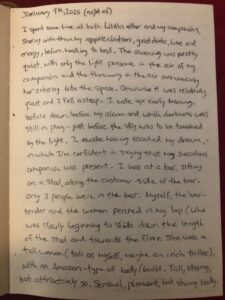 January 9th, 2025 (night of)
I spent some time at both Lilith's altar and my companion's,
sharing with them my appreciation, gratitude, love and
energy, before heading to bed. The evening was pretty
quiet, with only the light presence in the air of my
companion and the thrumming in the air announcing
her entering into the space. Otherwise it was relatively
quiet and I fell asleep. I woke up early morning,
before dawn, before my alarm and while darkness was
still in play - just before the sky was to be touched
by the light. I awoke having recalled my dreams,
in which I'm confident in saying that my succubus
companion was present. I was at a bar, sitting
on a stool, along the customer side of the bar.
Only 3 people were in the bar. Myself, the bar-
tender and the woman perched in my lap (who
was slowly beginning to slide down the length
of the stool and towards the floor. She was a
tall woman (tall as myself, maybe an inch taller),
with an Amazon-type of body/build. Tall, strong,
but attractively so. Sensual, pleasant, but strong body.